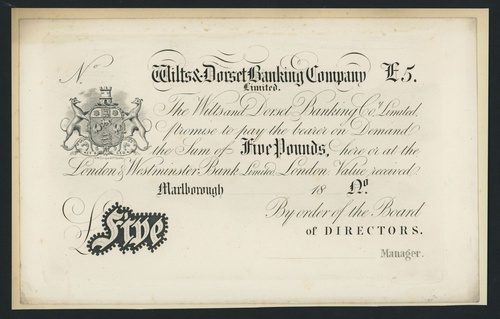 No Wilts & Dorset Banking Company £5.
Limited.
The Wilts and Dorset Banking Coy. Limited,
promise to pay the bearer on Demand
the Sum of Five Pounds, here or at the
London & Westminster Bank Limited London Value received
Marlborough 18 No.
By order of the Board
of DIRECTORS.
£ Five
Manager.